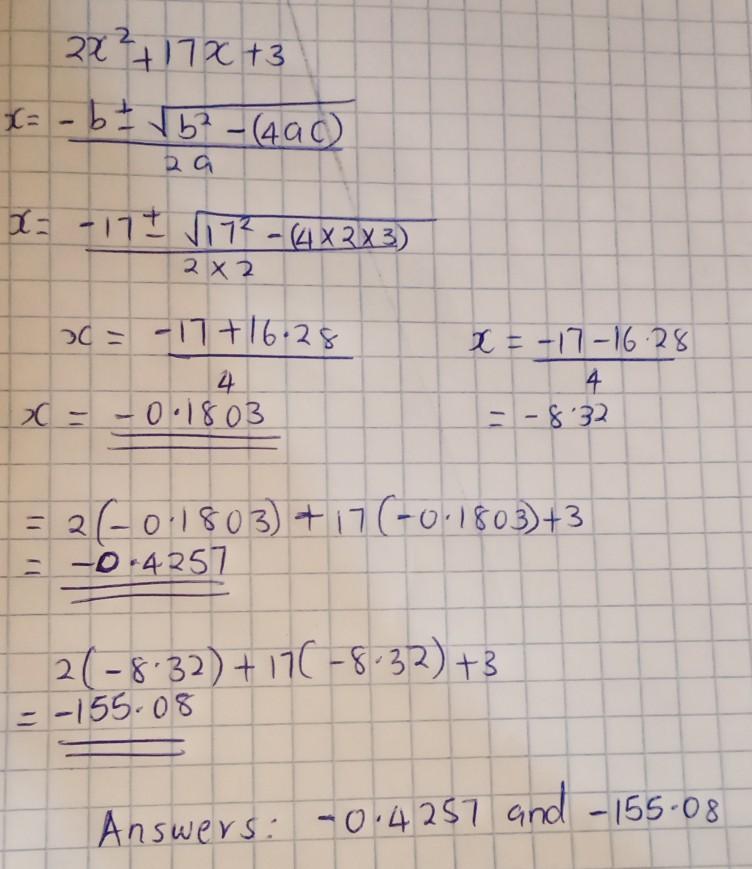 2x² + 17x + 3
x = -b ± √b² - (4ac)
2a
x = -17 ± √17² - (4 × 2 × 3)
2 × 2
x = -17 + 16.28
4
x = -0.1803
x = -17 - 16.28
4
= -8.32
= 2(-0.1803) + 17(-0.1803) + 3
= -0.4257
2(-8.32) + 17(-8.32) + 3
= -155.08
Answers: -0.4257 and -155.08